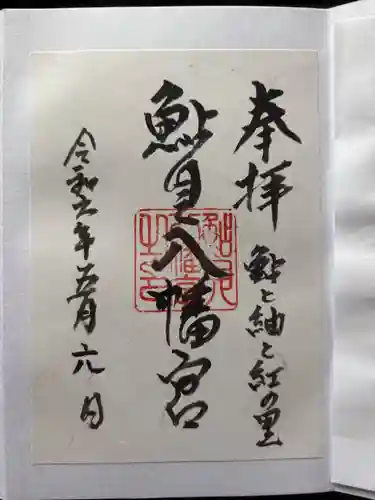 奉拝
鮎と紬と紅の里
鮎貝八幡宮
令和六年五月六日